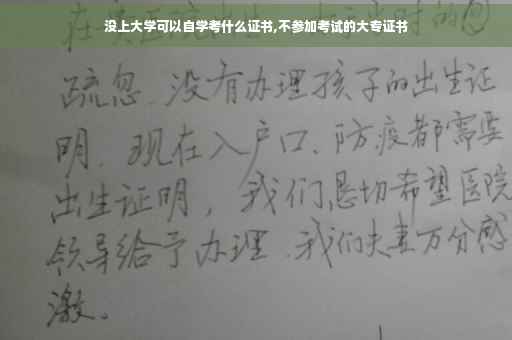 没上大学可以自学考什么证书,不参加考试的大专证书
在 时的
疏忽.没有办理孩子的出生证
明.现在入户口、防疫都需要
出生证明，我们恳切希望医院
领导给予办理.我们夫妻万分感
激。